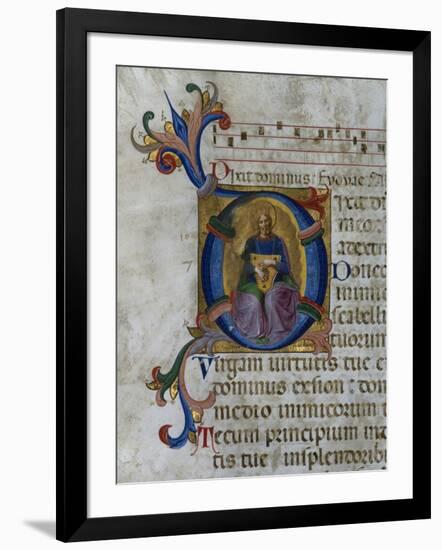 Dixit dominus Evovae
ixit
meo
a dextri
Donec
inimic
scabellu
tuorum
Virgam virtutis tue e
dominus exsion: dom
medio inimicorum t
Tecum principium ind
tis tue insplendorib